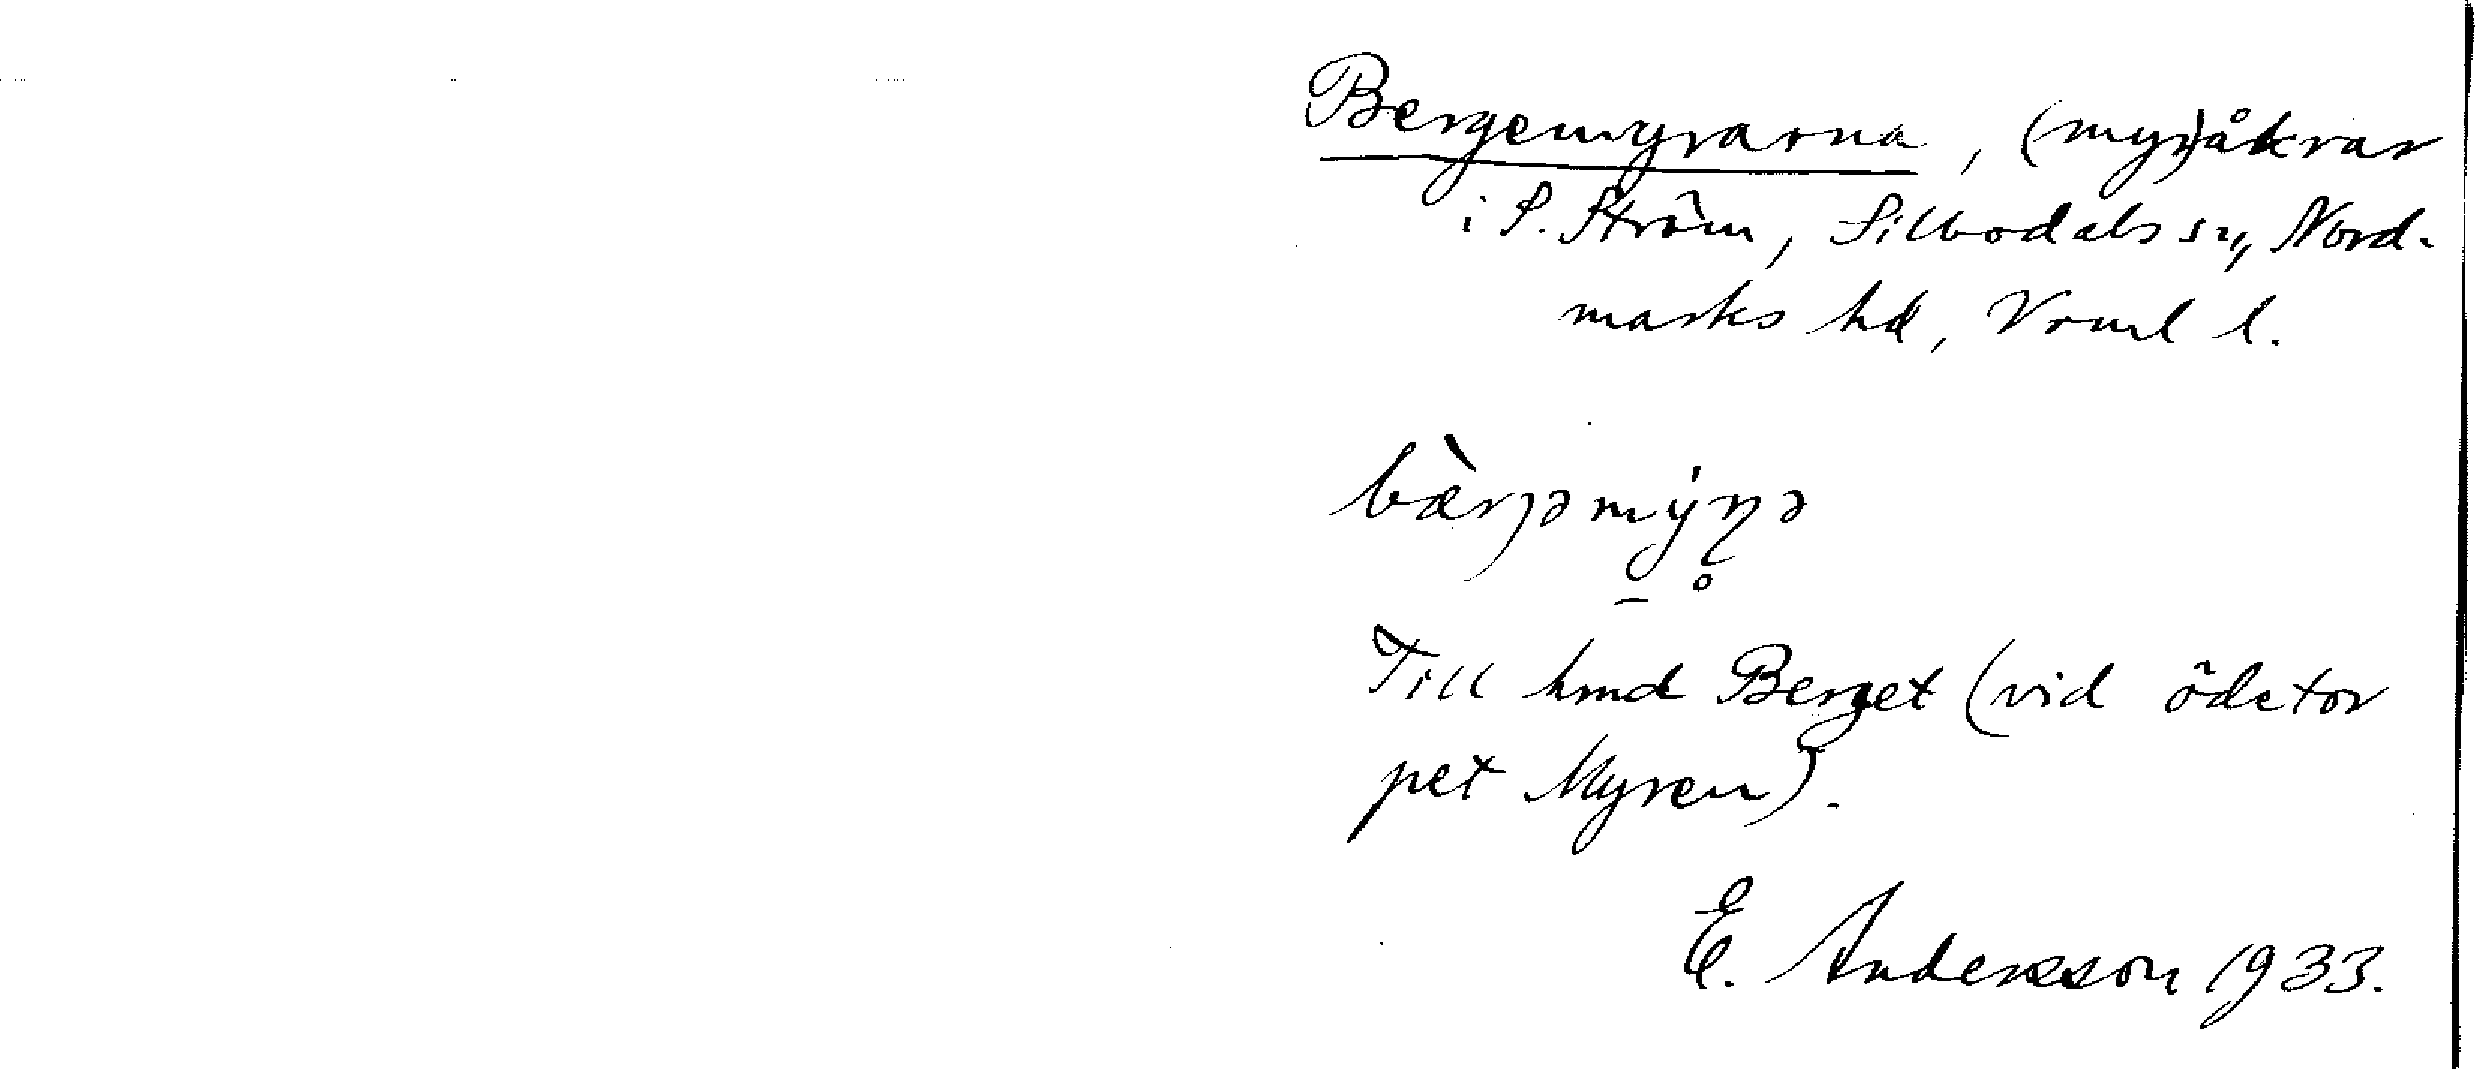 Bergemyrarna, (myr)åkrar
i S. Ström, Silbodals sn, Nord-
marks hd, Vrml l.
bær̀ȷəmýn̥ə
Till hmd Berget (vid ödetor
pet Myren).
E. Andersson 1933.